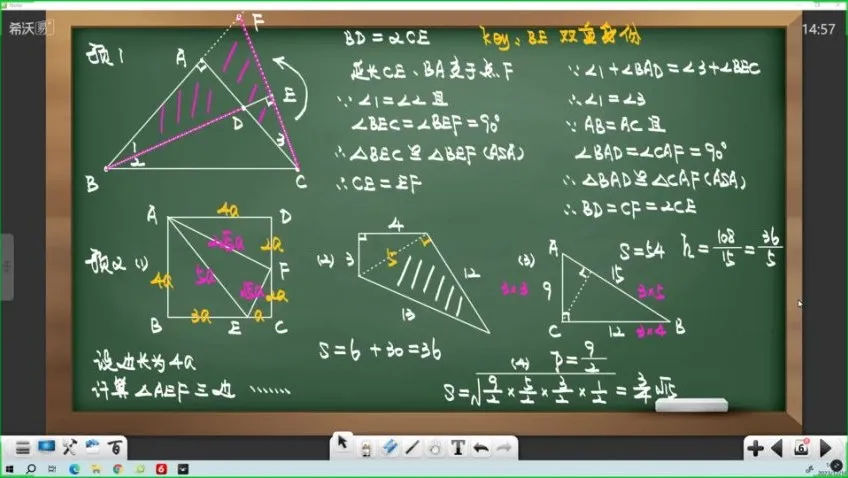 希沃
14:57
预1
F
A
E
D
1
2
3
B
C
BD=2CE
延长CE、BA交于点F
∵∠1=∠2且
∠BEC=∠BEF=90°
∴△BEC≌△BEF(ASA)
∴CE=EF
key: BE 双重身份
∵∠1+∠BAD=∠3+∠BEC
∴∠1=∠3
∵AB=AC且
∠BAD=∠CAF=90°
∴△BAD≌△CAF(ASA)
∴BD=CF=2CE
预2 (1)
A
4a
D
2√5a
2a
4a
5a
F
√5a
2a
B
3a
E
a
C
设边长为4a
计算△AEF三边 ……
(2)
4
3
5
12
13
S=6+30=36
(3)
A
3×3
9
15
3×5
C
12
3×4
B
S=54 h=108/15=36/5
(4) p=9/2
S=√(9/2×5/2×3/2×1/2)=3/4√15
T
6